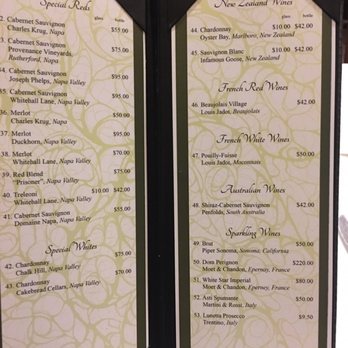 Special Reds
glass bottle
2. Cabernet Sauvignon
Charles Krug, Napa $55.00
Cabernet Sauvignon $75.00
Provenance Vineyards,
Rutherford, Napa
Cabernet Sauvignon $95.00
Joseph Phelps, Napa Valley
35. Cabernet Sauvignon $95.00
Whitehall Lane, Napa Valley
36. Merlot $50.00
Charles Krug, Napa
37. Merlot $95.00
Duckhorn, Napa Valley
38. Merlot $70.00
Whitehall Lane, Napa Valley
39. Red Blend $75.00
"Prisoner", Napa Valley
40. Treleoni $10.00 $42.00
Whitehall Lane, Napa Valley
41. Cabernet Sauvignon $55.00
Domaine Napa, Napa Valley
Special Whites
42. Chardonnay $75.00
Chalk Hill, Napa Valley
43. Chardonnay $70.00
Cakebread Cellars, Napa Valley
New Zealand Wines
glass bottle
44. Chardonnay $10.00 $42.00
Oyster Bay, Marlboro, New Zealand
45. Sauvignon Blanc $10.00 $42.00
Infamous Goose, New Zealand
French Red Wines
46. Beaujolais Village $42.00
Louis Jadot, Beaujolais
French White Wines
47. Pouilly-Fuisse $50.00
Louis Jadot, Maconnais
Australian Wines
48. Shiraz-Cabernet Sauvignon $42.00
Penfolds, South Australia
Sparkling Wines
49. Brut $50.00
Piper Sonoma, Sonoma, California
50. Dom Perignon $220.00
Moet & Chandon, Epernay, France
51. White Star Imperial $80.00
Moet & Chandon, Epernay, France
52. Asti Spumante $50.00
Martini & Rossi, Italy
53. Lunetta Prosecco $9.50
Trentino, Italy